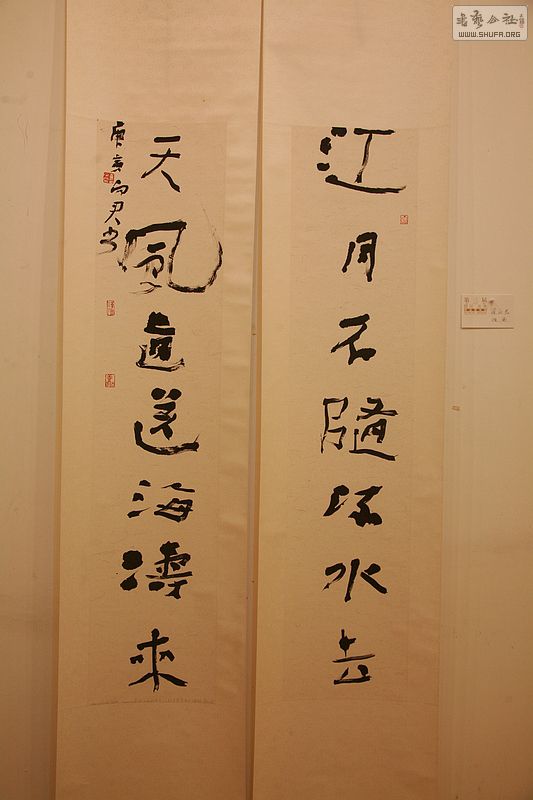 江月不隨流水去
天風直送海濤來
庚寅向君書
WWW.SHUFA.ORG